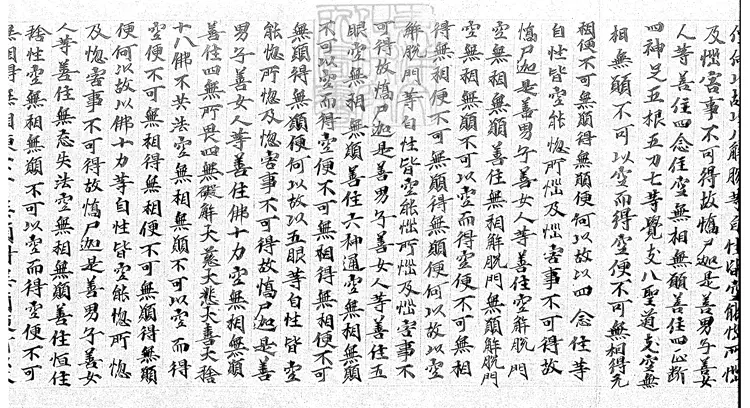 何以故以八解脫等自性皆空能惱所惱
及惱害事不可得故憍尸迦是善男子善女
人等善住四念住空無相無願善住四正斷
四神足五根五力七等覺支八聖道支空無
相無願不可以空而得空便不可無相得无
相便不可無願得無願便何以故以四念住等
自性皆空能惱所惱及惱害事不可得故
憍尸迦是善男子善女人等善住空解脫門
空無相無願善住無相解脫門無願解脫門
空無相無願不可以空而得空便不可無相
得無相便不可無願得無願便何以故以空
解脫門等自性皆空能惱所惱及惱害事不
可得故憍尸迦是善男子善女人等善住五
眼空無相無願善住六神通空無相無願
不可以空而得空便不可無相得無相便不可
無願得無願便何以故以五眼等自性皆空
能惱所惱及惱害事不可得故憍尸迦是善
男子善女人等善住佛十力空無相無願
善住四無所畏四無礙解大慈大悲大喜大捨
十八佛不共法空無相無願不可以空而得
空便不可無相得無相便不可無願得無願
便何以故以佛十力等自性皆空能惱所惱
及惱害事不可得故憍尸迦是善男子善女
人等善住無忘失法空無相無願善住恒住
捨性空無相無願不可以空而得空便不可